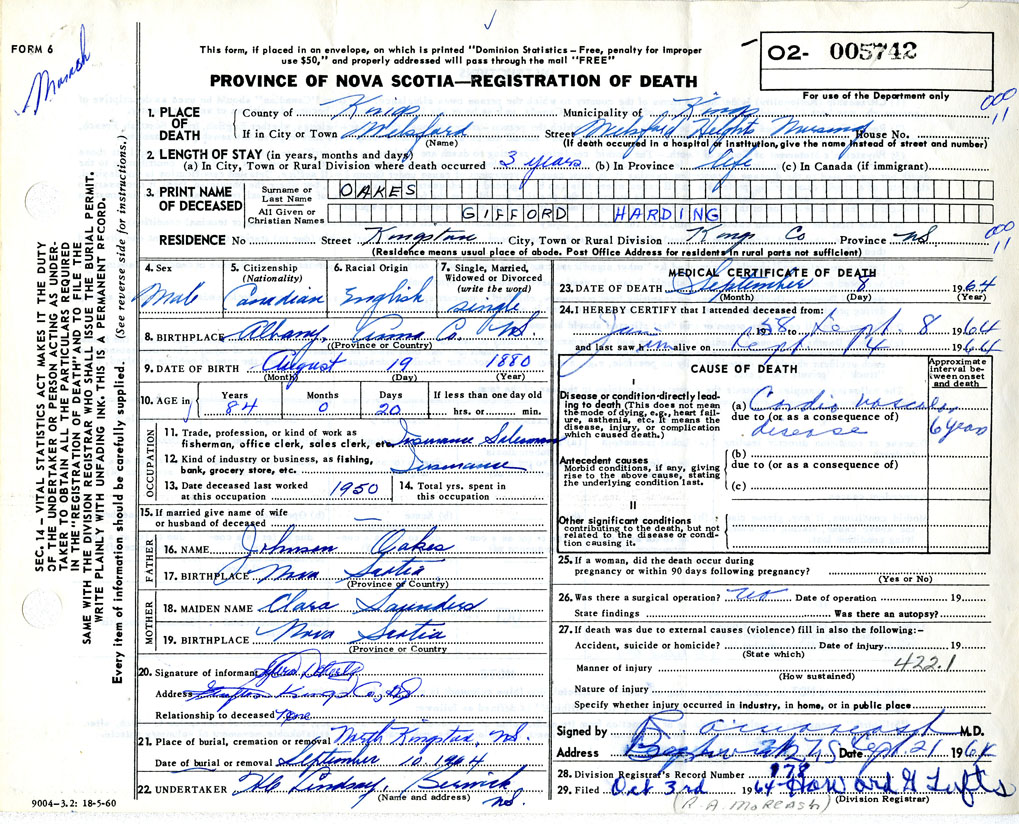 FORM 6
This form, if placed in an envelope, on which is printed "Dominion Statistics – Free, penalty for improper
use $50," and properly addressed will pass through the mail "FREE"
PROVINCE OF NOVA SCOTIA—REGISTRATION OF DEATH
O2- 005742
For use of the Department only
1. PLACE OF DEATH
County of Kings Municipality of Kings
If in City or Town Melsford Street Melsford Heights Nursing House No.
(Name) (If death occurred in a hospital or institution, give the name instead of street and number)
000
11
2. LENGTH OF STAY (in years, months and days)
(a) In City, Town or Rural Division where death occurred 3 years (b) In Province life (c) In Canada (if immigrant)
3. PRINT NAME OF DECEASED
Surname or Last Name OAKES
All Given or Christian Names GIFFORD HARDING
RESIDENCE No Street Kingston City, Town or Rural Division Kings Co Province NS
(Residence means usual place of abode. Post Office Address for residents in rural parts not sufficient)
000
11
SEC. 14 – VITAL STATISTICS ACT MAKES IT THE DUTY
OF THE UNDERTAKER OR PERSON ACTING AS UNDER-
TAKER TO OBTAIN ALL THE PARTICULARS REQUIRED
IN THE "REGISTRATION OF DEATH" AND TO FILE THE
SAME WITH THE DIVISION REGISTRAR WHO SHALL ISSUE THE BURIAL PERMIT.
WRITE PLAINLY WITH UNFADING INK. THIS IS A PERMANENT RECORD.
Every item of information should be carefully supplied. (See reverse side for instructions.)
4. Sex Male
5. Citizenship (Nationality) Canadian
6. Racial Origin English
7. Single, Married, Widowed or Divorced (write the word) single
8. BIRTHPLACE Albany, Anna Co. NS
(Province or Country)
9. DATE OF BIRTH August 19 1880
(Month) (Day) (Year)
10. AGE in Years 84 Months 0 Days 20 If less than one day old hrs. or min.
OCCUPATION
11. Trade, profession, or kind of work as
fisherman, office clerk, sales clerk, etc. Insurance Salesman
12. Kind of industry or business, as fishing,
bank, grocery store, etc. Insurance
13. Date deceased last worked
at this occupation 1950
14. Total yrs. spent in
this occupation
15. If married give name of wife
or husband of deceased —
FATHER
16. NAME Johnson Oakes
17. BIRTHPLACE Nova Scotia
(Province or Country)
MOTHER
18. MAIDEN NAME Clara Saunders
19. BIRTHPLACE Nova Scotia
(Province or Country
20. Signature of informant
Address Kings Co, NS.
Relationship to deceased None
21. Place of burial, cremation or removal North Kingston NS.
Date of burial or removal September 10 1964
22. UNDERTAKER Lindsay, Berwick
(Name and address) NS.
9004-3.2: 18-5-60
MEDICAL CERTIFICATE OF DEATH
23. DATE OF DEATH September 8 1964
(Month) (Day) (Year)
24. I HEREBY CERTIFY that I attended deceased from:
1958 to Sept. 8 1964
and last saw him alive on Sept 4 1964
CAUSE OF DEATH
Approximate interval between onset and death
I
Disease or condition directly lead-
ing to death (This does not mean
the mode of dying, e.g., heart fail-
ure, asthenia, etc. It means the
disease, injury, or complication
which caused death.)
(a) Cardio vascular
due to (or as a consequence of)
disease 6 years
Antecedent causes
Morbid conditions, if any, giving
rise to the above cause, stating
the underlying condition last.
(b)
due to (or as a consequence of)
(c)
II
Other significant conditions
contributing to the death, but not
related to the disease or condi-
tion causing it.
25. If a woman, did the death occur during
pregnancy or within 90 days following pregnancy?
(Yes or No)
26. Was there a surgical operation? no Date of operation 19
State findings Was there an autopsy?
27. If death was due to external causes (violence) fill in also the following:–
Accident, suicide or homicide? Date of injury 19
(State which)
422.1
Manner of injury
(How sustained)
Nature of injury
Specify whether injury occurred in industry, in home, or in public place
Signed by M.D.
Address Berwick NS Date Sept 21 1964
28. Division Registrar's Record Number 178
29. Filed Oct 3rd 1964 Howard G Tufts
(Division Registrar)